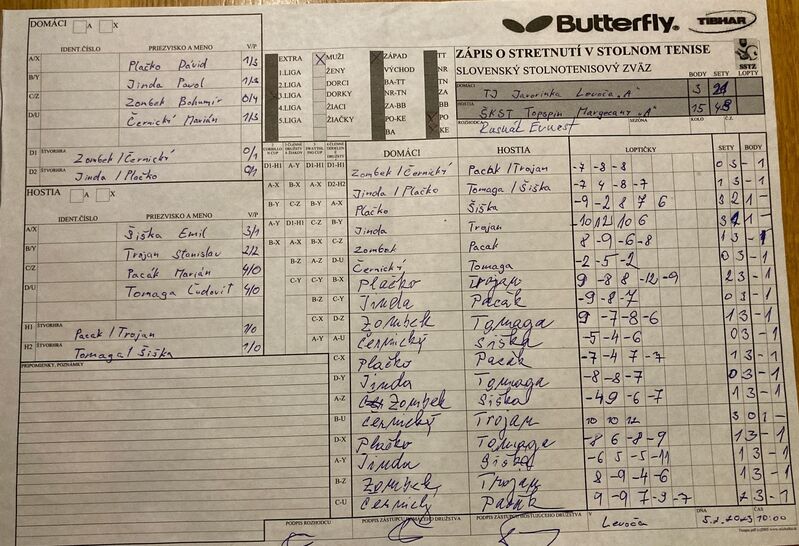 DOMÁCI A X
Butterfly. TIBHAR
IDENT.ČÍSLO PRIEZVISKO A MENO V/P
A/X Plačko Dávid 1/3
B/Y Jinda Pavol 1/3
C/Z Zombek Bohumir 0/4
D/U Černický Marián 1/3
ŠTVORHRA
D1 Zombek / Černický 0/1
D2 Jinda / Plačko 0/1
HOSTIA A X
IDENT.ČÍSLO PRIEZVISKO A MENO V/P
A/X Šiška Emil 3/1
B/Y Trojan Stanislav 2/2
C/Z Pacák Marián 4/0
D/U Tomaga Ľudovít 4/0
H1 ŠTVORHRA Pacák / Trojan 1/0
H2 ŠTVORHRA Tomaga / Šiška 1/0
PRIPOMIENKY, POZNÁMKY
EXTRA X MUŽI X ZÁPAD TT
1.LIGA ŽENY VÝCHOD NR
2.LIGA DORCI BA-TT ZA
DORKY NR-TN BB
4.LIGA ŽIACI ZA-BB PO
5.LIGA ŽIAČKY PO-KE KE
BA
ZÁPIS O STRETNUTÍ V STOLNOM TENISE
SLOVENSKÝ STOLNOTENISOVÝ ZVÄZ SSTZ
BODY SETY LOPTY
DOMÁCI TJ Javorinka Levoča „A" 3
HOSTIA ŠKST Topspin Margecany „A" 15
ROZHODCA SEZÓNA KOLO Č.Z.
DOMÁCI HOSTIA LOPTIČKY SETY BODY
D1-H1 A-Y D1-H1 D1-H1 Zombek / Černický Pacák / Trojan -7 -8 -8 0 3 - 1
A-X B-X A-X D2-H2 Jinda / Plačko Tomaga / Šiška -7 4 -8 -7 1 3 - 1
B-Y C-Z B-Y A-X Plačko Šiška -9 -2 8 7 6 3 2 1 -
A-Y D1-H1 C-Z B-Y Jinda Trojan -10 12 10 6 3 1 1 -
B-X A-X B-X C-Z Zombek Pacák 8 -9 -6 -8 1 3 - 1
B-Z A-Z D-U Černický Tomaga -2 -5 -2 0 3 - 1
C-Y C-Y B-X Plačko Trojan 9 -8 8 -12 -9 2 3 - 1
B-Z C-Y Jinda Pacák -9 -8 -7 0 3 - 1
C-X D-Z Zombek Tomaga 9 -7 -8 -6 1 3 - 1
A-Y A-U Černický Šiška -5 -4 -6 0 3 - 1
C-X Plačko Pacák -7 -4 7 -7 1 3 - 1
D-Y Jinda Tomaga -8 -8 -7 0 3 - 1
A-Z Zombek Šiška -4 9 -6 -7 1 3 - 1
B-U Černický Trojan 10 10 12 3 0 1 -
D-X Plačko Tomaga -8 6 -8 -9 1 3 - 1
A-Y Jinda Šiška -6 5 -5 -11 1 3 - 1
B-Z Zombek Trojan 8 -9 -4 -6 1 3 - 1
C-U Černický Pacák 9 -9 7 -3 -7 2 3 - 1
PODPIS ROZHODCU PODPIS ZÁSTUPCU DOMÁCEHO DRUŽSTVA PODPIS ZÁSTUPCU HOSŤUJÚCEHO DRUŽSTVA V Levoča DŇA 5.2.2023 ČAS 10:00